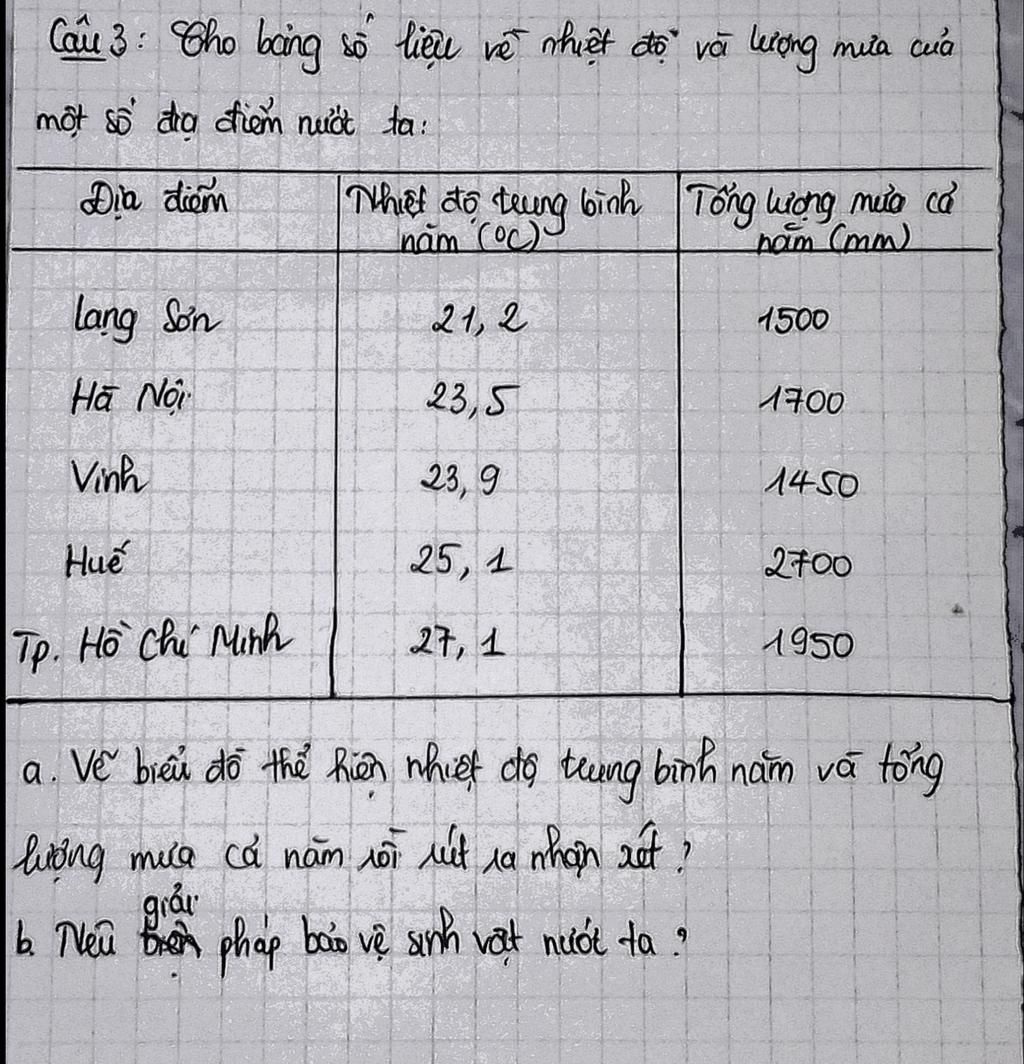 Câu 3: Cho bảng số liệu về nhiệt độ và lượng mưa của
một số địa điểm nước ta:
Địa điểm | Nhiệt độ trung bình năm (°C) | Tổng lượng mưa cả năm (mm)
Lạng Sơn 21,2 1500
Hà Nội 23,5 1700
Vinh 23,9 1450
Huế 25,1 2700
Tp. Hồ Chí Minh 27,1 1950
a. Vẽ biểu đồ thể hiện nhiệt độ trung bình năm và tổng
lượng mưa cả năm rồi rút ra nhận xét?
giải
b. Nêu pháp bảo vệ sinh vật nước ta?